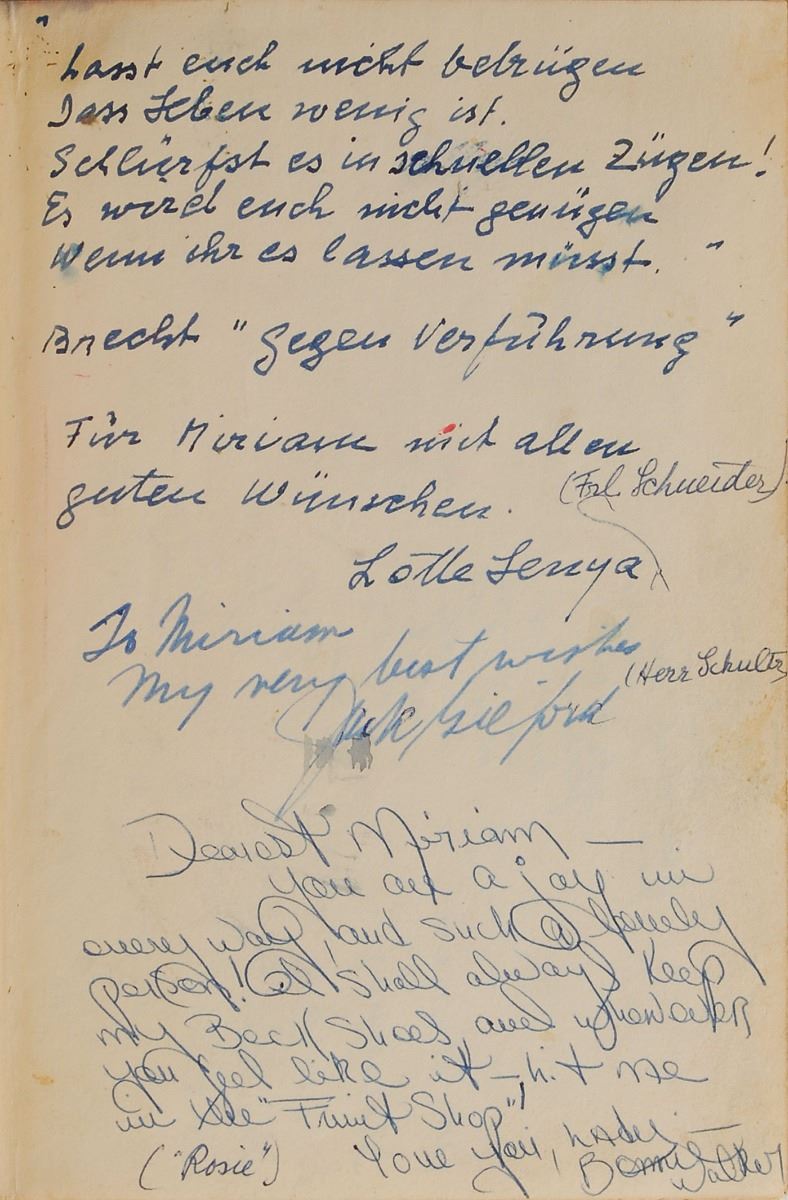 "Lasst euch nicht betrügen
Dass Leben wenig ist.
Schlürfst es in schnellen Zügen!
Es wird euch nicht genügen
Wenn ihr es lassen müsst."
Brecht "Gegen Verführung"
Für Miriam mit allen
guten Wünschen.
(Frl. Schneider)
Lotte Lenya
To Miriam
My very best wishes
(Herr Schultz
Jack Gilford
Dearest Miriam —
you are a joy in
every way, and such a lovely
person! I shall always keep
my Beck Shoes, and whenever
you feel like it — hit me
in the "Fruit Shop"!
("Rosie") Love you, lady —
Bonnie
Walker